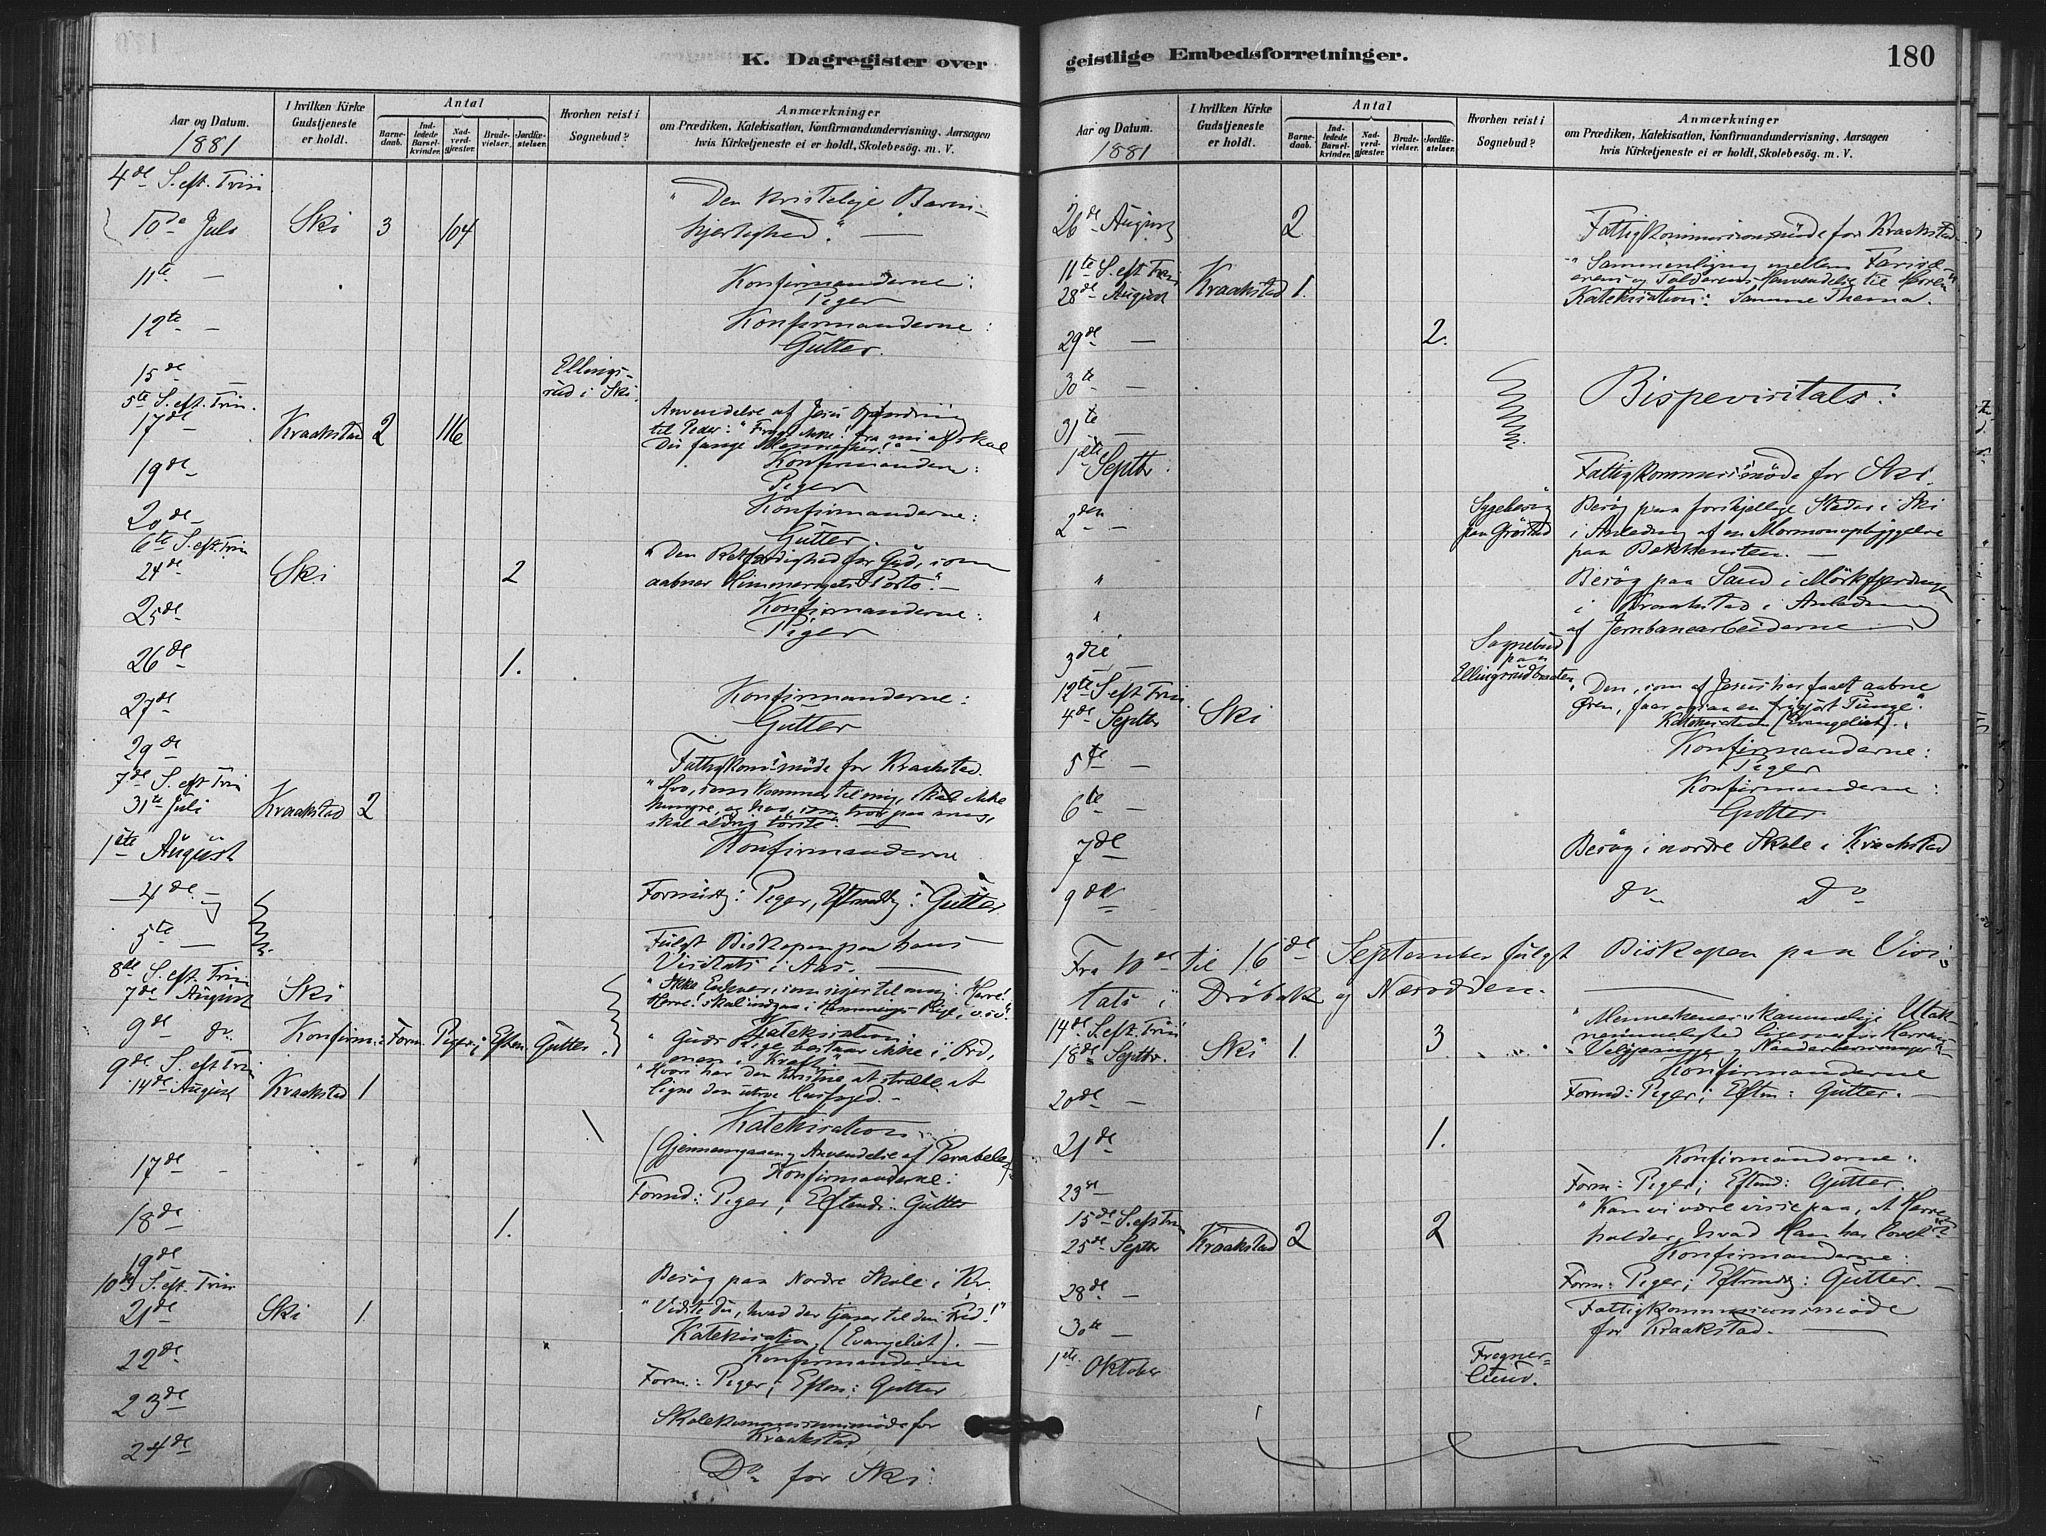 K. Dagregister over
Aar og Datum.
1881
I hvilken Kirke
Gudstjeneste
er holdt.
Antal
Barne-
daab.
Ind-
ledede
Barsel-
kvinder.
Nad-
verd-
gjæster.
Brude-
vielser.
Jordfæ-
stelser.
Hvorhen reist i
Sognebud?
Anmærkninger
om Prædiken, Katekisation, Konfirmandundervisning, Aarsagen
hvis Kirketjeneste ei er holdt, Skolebesøg. m. V.
4de S. eft. Trin
10de Juli Ski 3 104 "Den kristelige Barm-
hjertighed." —
11te — Konfirmanderne:
Piger
12te — Konfirmanderne:
Gutter.
15de — Ellings-
rud i Ski
5te S. eft. Trin.
17de Kraakstad 2 116 Anvendelse af Jesu Opfordring
til Peder: "Frygt ikke, fra nu af skal
Du fange Mennesker!"
19de Konfirmanderne:
Piger
20de Konfirmanderne:
Gutter.
6te S. eft. Trin
24de Ski 2 "Den Retfærdighed for Gud, som
aabner Himmeriges Porte". —
25de Konfirmanderne:
Piger
26de 1.
27de Konfirmanderne:
Gutter
29de Fattigkomsmøde for Kraakstad.
7de S. eft. Trin
31te Juli Kraakstad 2 "Hvo, som kommer til mig, skal ikke
hungre, og hvo, som tror paa mig,
skal aldrig tørste". —
1ste August Konfirmanderne
4de — Formidg: Piger, Eftmidg: Gutter.
5te — Fulgt Biskopen paa hans
Visitats i Aas. —
8de S. eft. Trin
7de August Ski "Ikke Enhver, som siger til mig: Herre!
Herre! skal indgaa i Himmerigs Rige, o.s.v."
Katekisation:
9de do. Konfirm: Form. Piger; Eftm: Gutter. "Guds Rige bestaar ikke i Ord,
men i Kraft". —
9de S. eft. Trin
14de August Kraakstad 1 "Hvori har den Kristne at stræbe at
ligne den utro Husfoged. —
Katekisation
(Gjennemgaaen og Anvendelse af Parabelen)
17de Konfirmanderne:
Formd: Piger; Eftmd: Gutter
18de 1.
19de Besøg paa Nordre Skole i Kr.
10de S. eft. Trin
21de Ski 1. "Vidste du, hvad der tjener til din Fred!"
Katekisation (Evangeliet). —
22de Konfirmanderne
Form.: Piger; Eftm: Gutter
23de Skolekommissionsmøde for
Kraakstad
24de Do for Ski:
geistlige Embedsforretninger.
180
Aar og Datum.
1881
I hvilken Kirke
Gudstjeneste
er holdt.
Antal
Barne-
daab.
Ind-
ledede
Barsel-
kvinder.
Nad-
verd-
gjæster.
Brude-
vielser.
Jordfæ-
stelser.
Hvorhen reist i
Sognebud?
Anmærkninger
om Prædiken, Katekisation, Konfirmandundervisning, Aarsagen
hvis Kirketjeneste ei er holdt, Skolebesøg. m. V.
26de August 2 Fattigkommissionsmøde for Kraakstad
11te S. eft. Trin
28de August Kraakstad 1. "Sammenligning mellem Farisæ-
erens og Tolderens Henvendelse til Herren"
Katekisation: Samme Thema.
29de — 2.
30te — Bispevisitats:
31te —
1ste Septbr. Fattigkommissmøde for Ski.
2den — Sygebesøg
paa Grøstad Besøg paa forskjellige Steder i Ski
i Anledning af en Mormonopbyggelse
paa Bakkensteen. —
" Besøg paa Sand i Mørkfjerdingen
" i Kraakstad i Anledning
af Jernbanearbeiderne
3die — Sognebud
paa
Ellingsrudbraaten
12te S. eft. Trin
4de Septbr Ski "Den, som af Jesus har faaet aabne
Øren, faar ogsaa en frigjort Tunge".
Katekisation (Evangeliet).
5te — Konfirmanderne:
Piger
6te — Konfirmanderne:
Gutter
7de Besøg i nordre Skole i Kraakstad
9de do Do
Fra 10de til 16de September fulgt Biskopen paa Visi-
tats i Drøbak og Næsodden.
14de S. eft. Trin
18de Septbr. Ski 1. 3 "Menneskenes skammelige Utak-
nemmelighed ligeoverfor Herrens
Velgjerninger og Naadesbevisninger"
Konfirmanderne
20de — Formd: Piger; Eftm: Gutter. —
21de 1.
Konfirmanderne:
23de Form: Piger; Eftmd: Gutter.
15de S. eft Trin
25de Septbr Kraakstad 2 2 "Kan vi være visse paa, at Herren
holder, hvad Han har lovet?"
Konfirmanderne:
28de — Form: Piger; Eftmidg: Gutter. —
30te — Fattigkommissionsmøde
for Kraakstad. —
1ste Oktober Fregner-